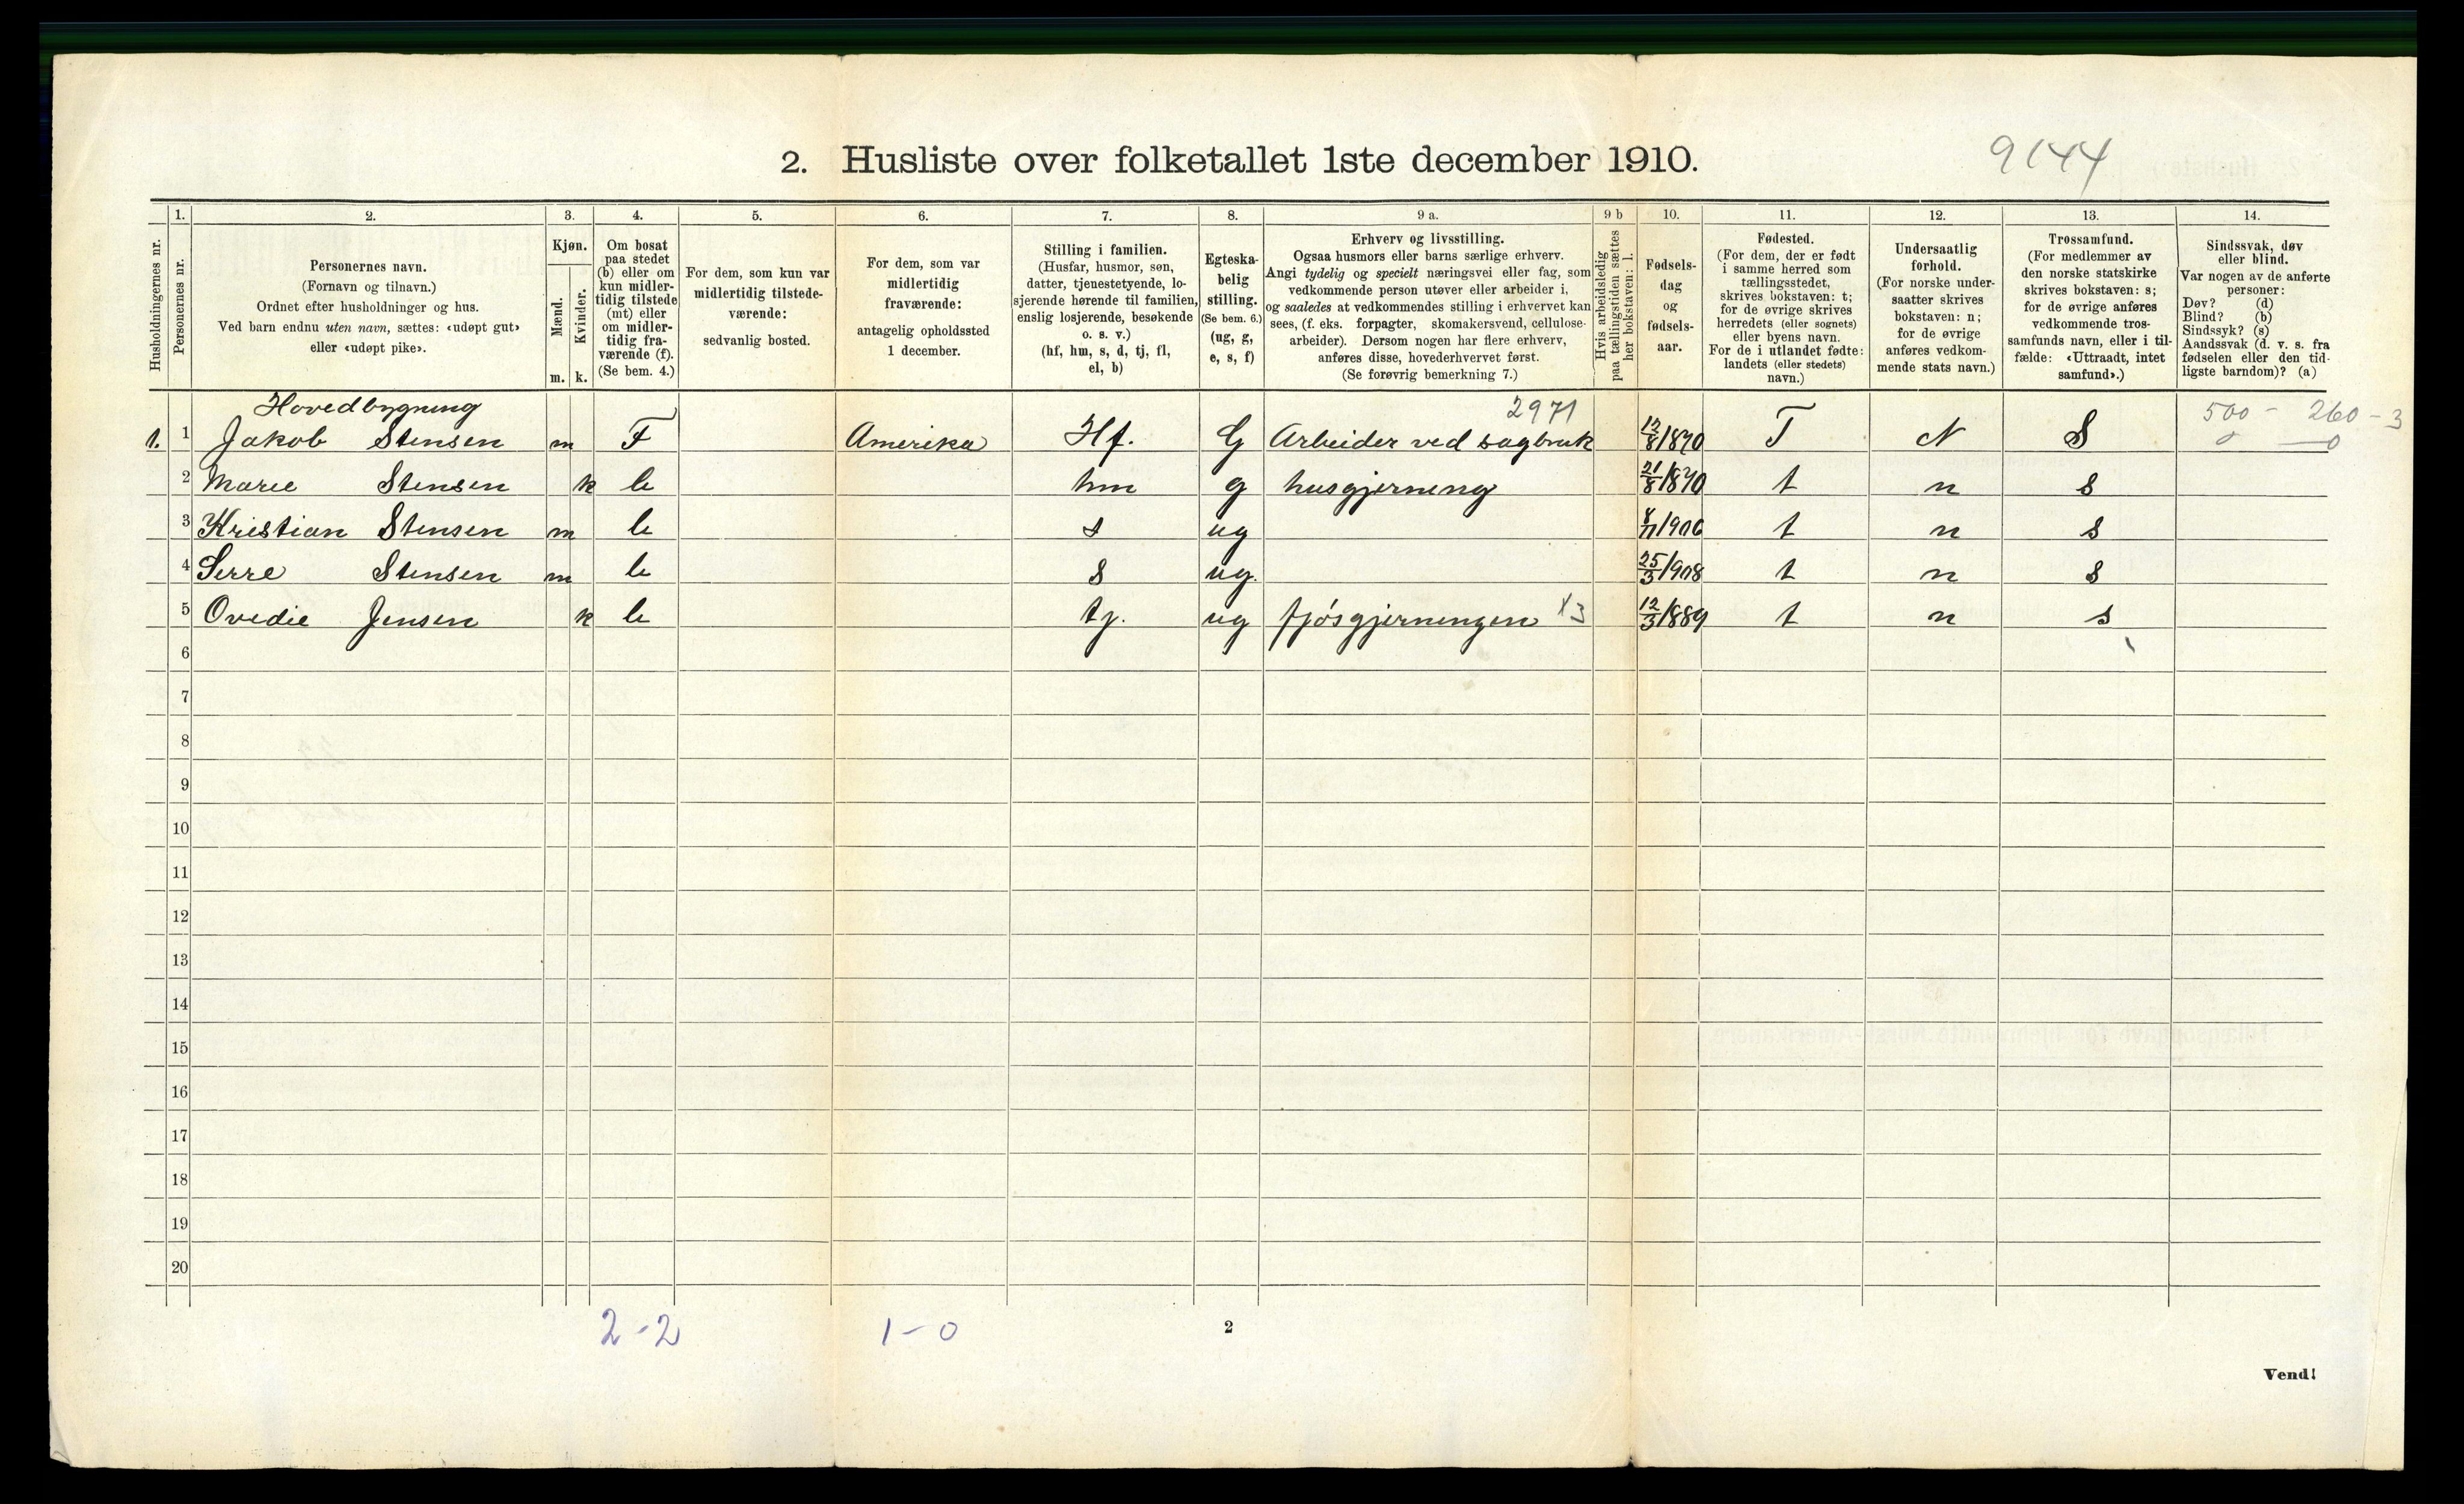 2. Husliste over folketallet 1ste december 1910.
9144
Husholdningernes nr.
1.
Personernes nr.
2.
Personernes navn.
(Fornavn og tilnavn.)
Ordnet efter husholdninger og hus.
Ved barn endnu uten navn, sættes: «udøpt gut»
eller «udøpt pike».
3.
Kjøn.
Mænd.
Kvinder.
m. k.
4.
Om bosat
paa stedet
(b) eller om
kun midler-
tidig tilstede
(mt) eller
om midler-
tidig fra-
værende (f).
(Se bem. 4.)
5.
For dem, som kun var
midlertidig tilstede-
værende:
sedvanlig bosted.
6.
For dem, som var
midlertidig
fraværende:
antagelig opholdssted
1 december.
7.
Stilling i familien.
(Husfar, husmor, søn,
datter, tjenestetyende, lo-
sjerende hørende til familien,
enslig losjerende, besøkende
o. s. v.)
(hf, hm, s, d, tj, fl,
el, b)
8.
Egteska-
belig
stilling.
(Se bem. 6.)
(ug, g,
e, s, f)
9 a.
Erhverv og livsstilling.
Ogsaa husmors eller barns særlige erhverv.
Angi tydelig og specielt næringsvei eller fag, som
vedkommende person utøver eller arbeider i,
og saaledes at vedkommendes stilling i erhvervet kan
sees, (f. eks. forpagter, skomakersvend, cellulose-
arbeider). Dersom nogen har flere erhverv,
anføres disse, hovederhvervet først.
(Se forøvrig bemerkning 7.)
9 b
Hvis arbeidsledig
paa tællingstiden sættes
her bokstaven: l.
10.
Fødsels-
dag
og
fødsels-
aar.
11.
Fødested.
(For dem, der er født
i samme herred som
tællingsstedet,
skrives bokstaven: t;
for de øvrige skrives
herredets (eller sognets)
eller byens navn.
For de i utlandet fødte:
landets (eller stedets)
navn.)
12.
Undersaatlig
forhold.
(For norske under-
saatter skrives
bokstaven: n;
for de øvrige
anføres vedkom-
mende stats navn.)
13.
Trossamfund.
(For medlemmer av
den norske statskirke
skrives bokstaven: s;
for de øvrige anføres
vedkommende tros-
samfunds navn, eller i til-
fælde: «Uttraadt, intet
samfund».)
14.
Sindssvak, døv
eller blind.
Var nogen av de anførte
personer:
Døv? (d)
Blind? (b)
Sindssyk? (s)
Aandssvak (d. v. s. fra
fødselen eller den tid-
ligste barndom)? (a)
Hovedbygning 2971 500 - 260 - 3
1. 1 Jakob Stensen m F Amerika Hf. G Arbeider ved sagbruk 12/8/1870 T N S 0 0
2 Marie Stensen k b hm g husgjerning 21/8/1870 t n s
3 Kristian Stensen m b s ug 8/11/1906 t n s
4 Serre Stensen m b s ug. 25/3/1908 t n s
5 Ovedie Jensen k b tj. ug fjøsgjerningen x3 12/3/1889 t n s
6
7
8
9
10
11
12
13
14
15
16
17
18
19
20
2-2 1-0
2
Vend!